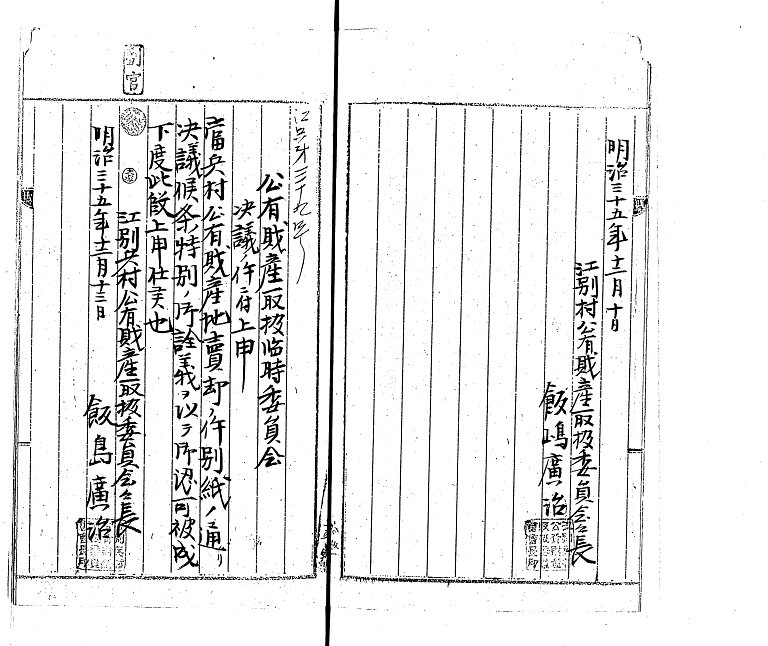 明治三十五年十二月十日
江別村公有財産取扱委員会々長
飯嶋廣治
江兵第三十九号
公有財産取扱臨時委員会
決議ノ件ニ付上申
當兵村公有財産地賣却ノ件別紙ノ通リ
決議候条特別ノ御詮義ヲ以テ御認可被成
下度此段上申仕候也
江別兵村公有財産取扱委員会々長
明治三十五年十二月十三日
飯島廣治